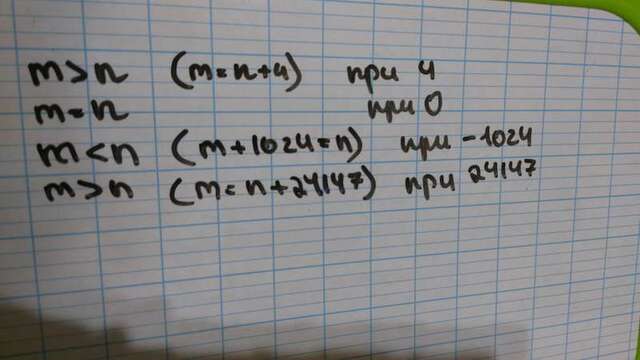 m>n (m=n+4) при 4
m=n при 0
m<n (m+1024=n) при -1024
m>n (m=n+24147) при 24147